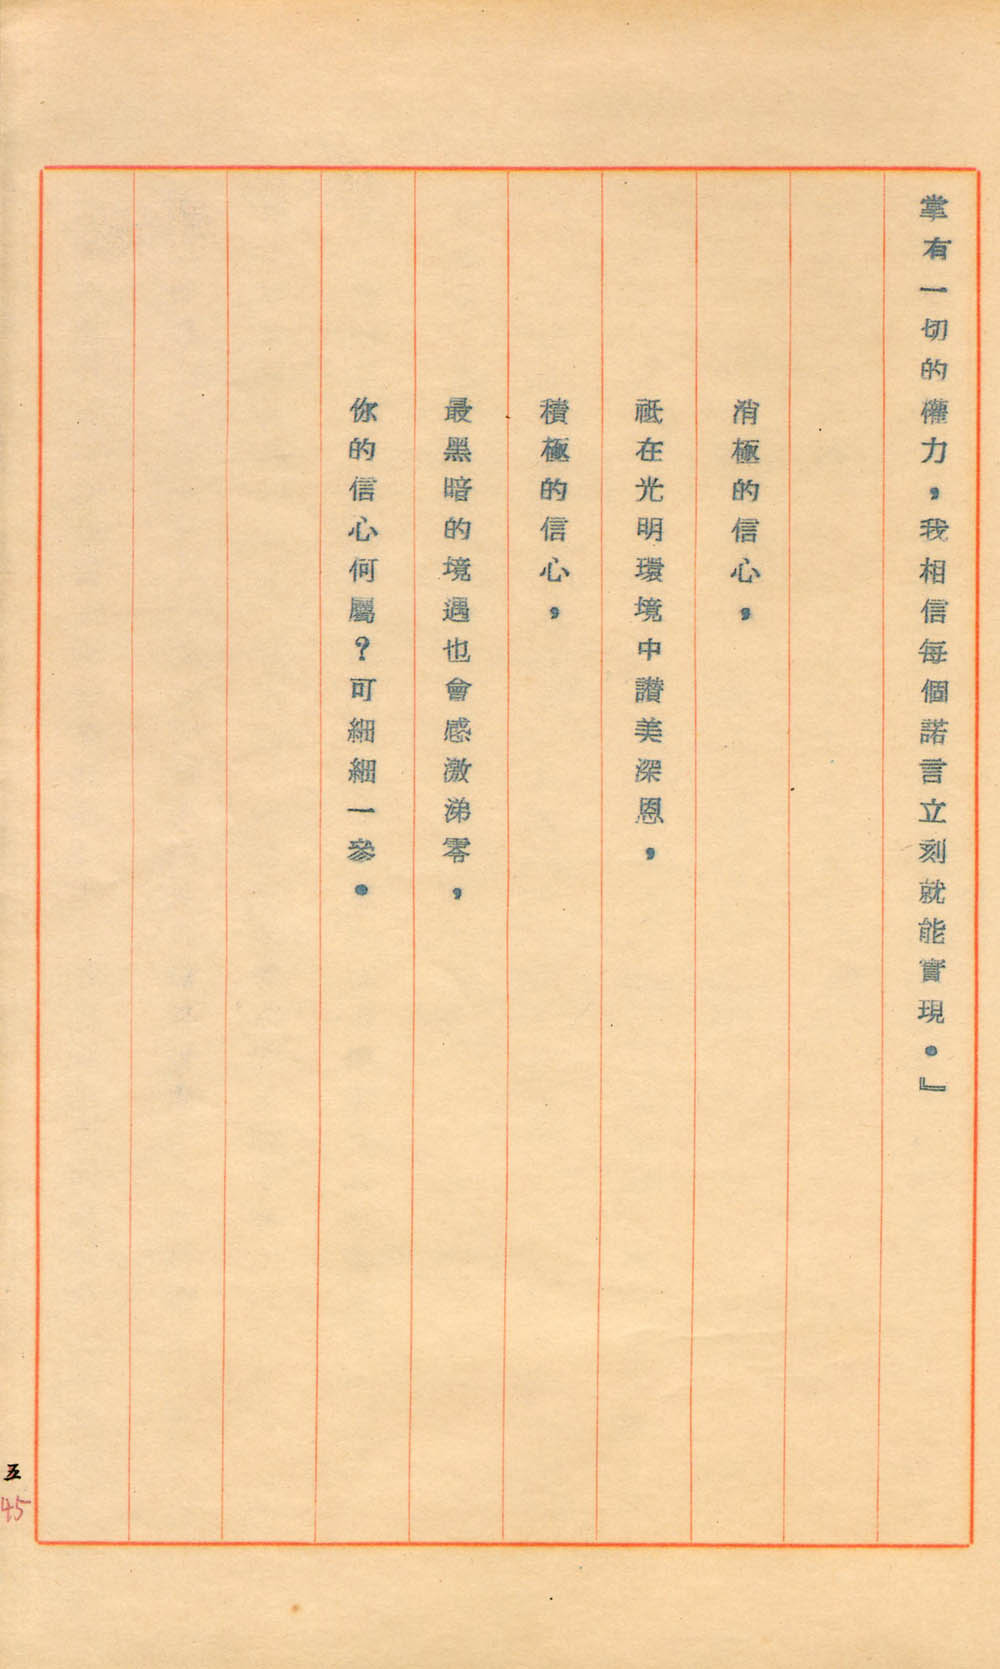 掌有一切的權力，我相信每個諾言立刻就能實現．』
消極的信心，
祗在光明環境中讚美深恩，
積極的信心，
最黑暗的境遇也會感激涕零，
你的信心何屬？可細細一參．
五
45